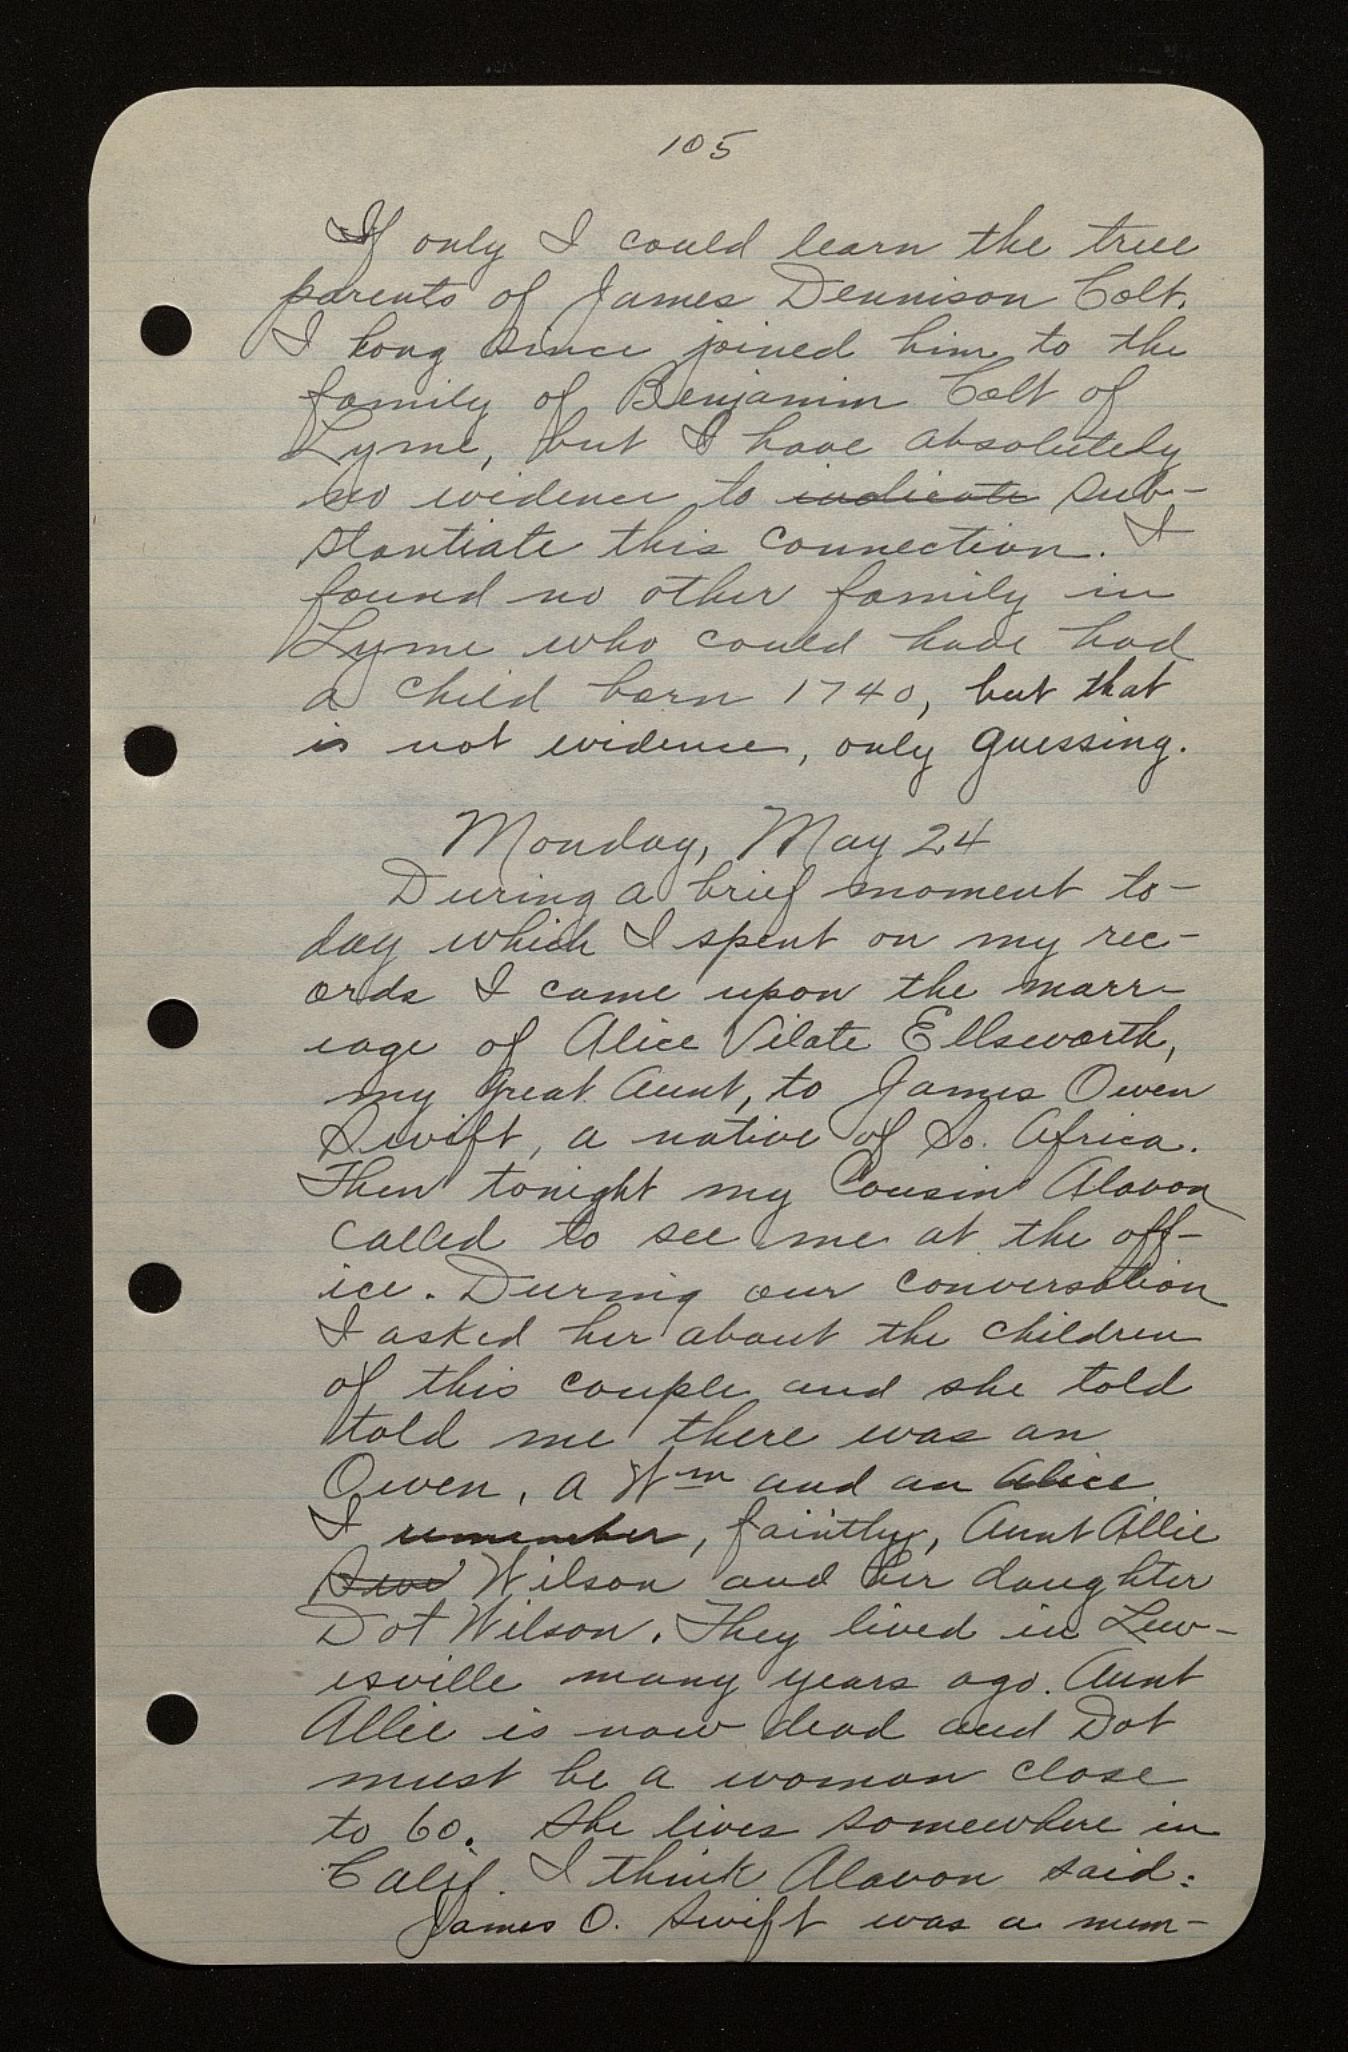 105
If only I could learn the true
parents of James Dennison Colt.
I long since joined him to the
family of Benjamin Colt of
Lyme, but I have absolutely
no evidence to indicate sub-
stantiate this connection. I
found no other family in
Lyme who could have had
a child born 1740, but that
is not evidence, only guessing.
Monday, May 24
During a brief moment to-
day which I spent on my rec-
ords I came upon the marr-
iage of Alice Vilate Ellsworth,
my great Aunt, to James Owen
Swift, a native of So. Africa.
Then tonight my Cousin Alavon
called to see me at the off-
ice. During our conversation
I asked her about the children
of this couple and she told
told me there was an
Owen, a Wm and an Alice
I remember, faintly, Aunt Allie
Wilson and her daughter
Dot Wilson. They lived in Lew-
isville many years ago. Aunt
Allie is now dead and Dot
must be a woman close
to 60. She lives somewhere in
Calif. I think Alavon said.
James O. Swift was a mem-